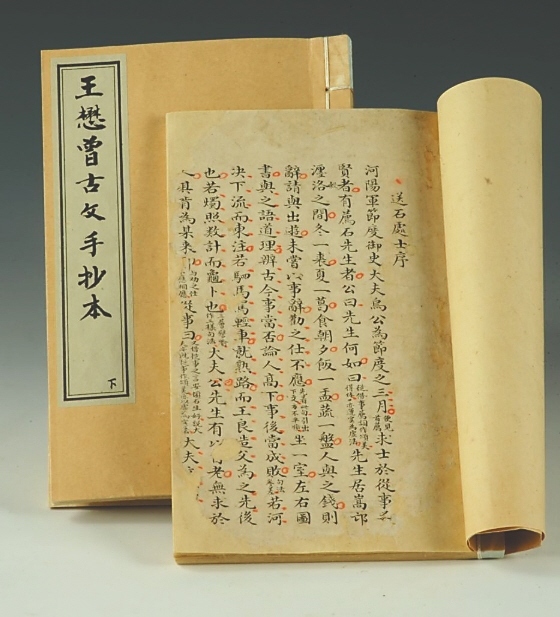 王懋曾古文手抄本
下
送石處士序
河陽軍節度御史大夫烏公為節度之三月求士於從事之
賢者有薦石先生者公曰先生何如曰先生居嵩邙
瀍洛之間冬一裘夏一葛食朝夕飯一盂蔬一盤人與之錢則
辭請與出遊未嘗以事辭勸之仕不應坐一室左右圖
書與之語道理辨古今事當否論人高下事後當成敗若河
決下流而東注若駟馬輕車就熟路而王良造父為之先後
也若燭照數計而龜卜也大夫先生有以老無求於
人肯為某来從事曰大夫